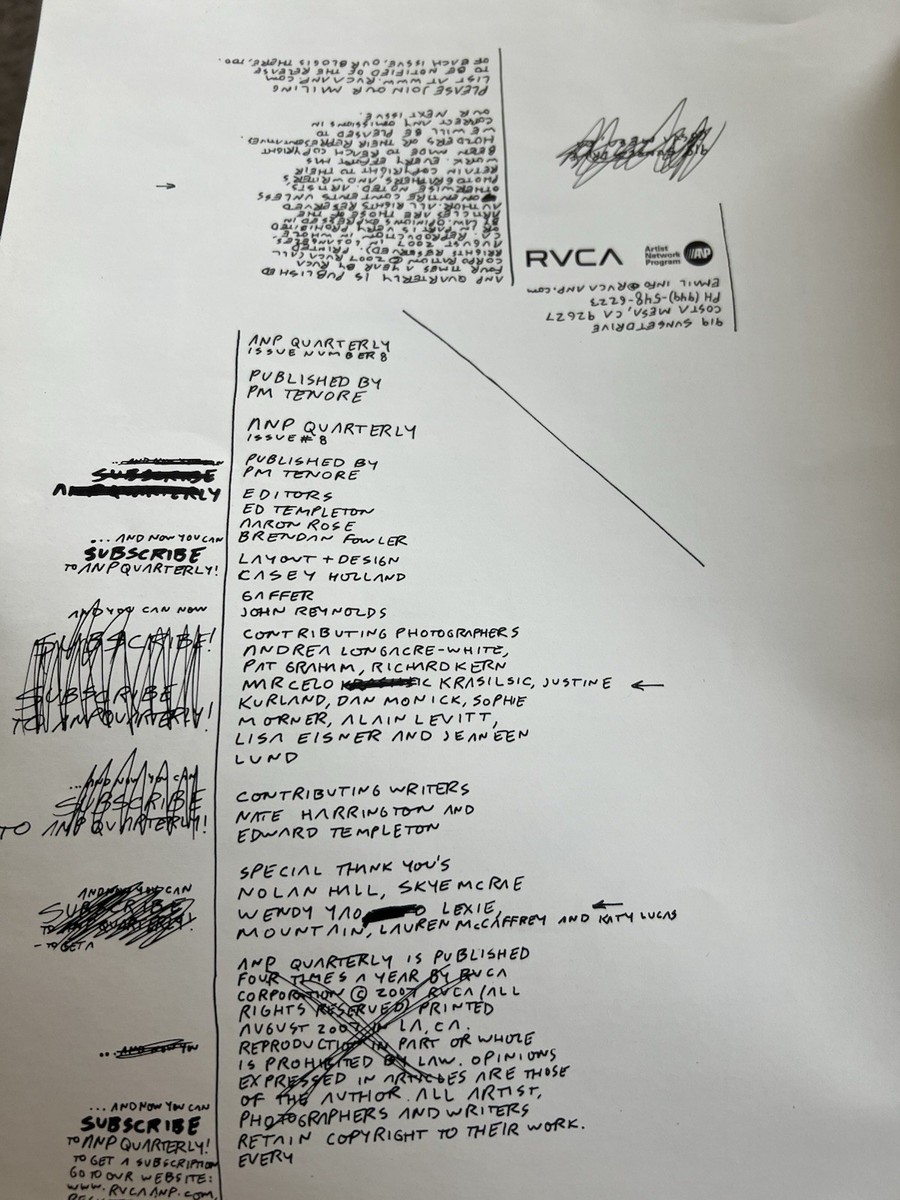 ANP QUARTERLY IS PUBLISHED
FOUR TIMES A YEAR BY RVCA
CORPORATION © 2007 RVCA (ALL
RIGHTS RESERVED). PRINTED
AUGUST 2007 IN LOS ANGELES
CA. REPRODUCTION IN WHOLE
OR IN PART IS VERY PROHIBITED
BY LAW. OPINIONS EXPRESSED IN
ARTICLES ARE THOSE OF THE
AUTHOR. ALL RIGHTS RESERVED
ON ENTIRE CONTENTS UNLESS
OTHERWISE NOTED. ARTISTS,
PHOTOGRAPHERS, AND WRITER'S
RETAIN COPYRIGHT TO THEIR
WORK. EVERY EFFORT HAS
BEEN MADE TO REACH COPYRIGHT
HOLDERS OR THEIR REPRESENTATIVES.
WE WILL BE PLEASED TO
CORRECT ANY OMISSIONS IN
OUR NEXT ISSUE.
PLEASE JOIN OUR MAILING
LIST AT WWW.RVCAANP.COM
TO BE NOTIFIED OF THE RELEASE
OF EACH ISSUE. OUR BLOG IS THERE, TOO.
RVCA
Artist
Network
Program
ANP
919 SUNSET DRIVE
COSTA MESA, CA 92627
PH (949)-548-6223
EMAIL INFO@RVCAANP.COM
ANP QUARTERLY
ISSUE NUMBER 8
PUBLISHED BY
PM TENORE
ANP QUARTERLY
ISSUE # 8
PUBLISHED BY
PM TENORE
EDITORS
ED TEMPLETON
AARON ROSE
BRENDAN FOWLER
LAYOUT + DESIGN
CASEY HOLLAND
GAFFER
JOHN REYNOLDS
CONTRIBUTING PHOTOGRAPHERS
ANDREA LONGACRE-WHITE,
PAT GRAHAM, RICHARD KERN
MARCELO KRASILSIC, JUSTINE
KURLAND, DAN MONICK, SOPHE
MORNER, ALAIN LEVITT,
LISA EISNER AND JEANEEN
LUND
CONTRIBUTING WRITERS
NATE HARRINGTON AND
EDWARD TEMPLETON
SPECIAL THANK YOU'S
NOLAN HALL, SKYE MCRAE
WENDY YAO LEXIE,
MOUNTAIN, LAUREN McCAFFREY AND KATY LUCAS
ANP QUARTERLY IS PUBLISHED
FOUR TIMES A YEAR BY RVCA
CORPORATION © 2007 RVCA (ALL
RIGHTS RESERVED) PRINTED
AUGUST 2007 IN LA, CA.
REPRODUCTION IN PART OR WHOLE
IS PROHIBITED BY LAW. OPINIONS
EXPRESSED IN ARTICLES ARE THOSE
OF THE AUTHOR. ALL ARTIST,
PHOTOGRAPHERS AND WRITERS
RETAIN COPYRIGHT TO THEIR WORK.
EVERY
SUBSCRIBE
ANP QUARTERLY
... AND NOW YOU CAN
SUBSCRIBE
TO ANP QUARTERLY!
AND YOU CAN NOW
SUBSCRIBE!
SUBSCRIBE
TO ANP QUARTERLY!
... AND NOW YOU CAN
SUBSCRIBE
TO ANP QUARTERLY!
AND NOW YOU CAN
SUBSCRIBE
TO ANP QUARTERLY!
- TO GET A
... AND NOW YOU
... AND NOW YOU CAN
SUBSCRIBE
TO ANP QUARTERLY!
TO GET A SUBSCRIPTION
GO TO OUR WEBSITE:
WWW.RVCAANP.COM,